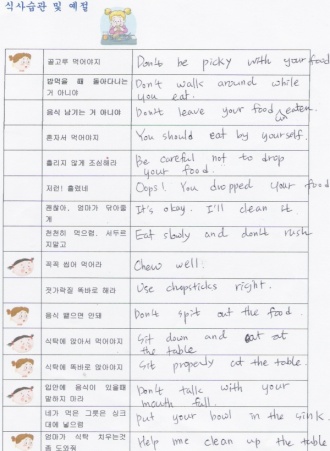 식사습관 및 예절
골고루 먹어야지
Don't be picky with your food
밥먹을 때 돌아다니는
거 아니야
Don't walk around while
you eat.
음식 남기는 거 아니야
Don't leave your food eaten.
혼자서 먹어야지
You should eat by yourself.
흘리지 않게 조심해라
Be careful not to drop
your food.
저런! 흘렸네
Oops! You dropped your food
괜찮아, 엄마가 닦아줄
게
It's okay. I'll clean it.
천천히 먹으렴, 서두르
지말고
Eat slowly and don't rush
꼭꼭 씹어 먹어라
Chew well.
젓가락질 똑바로 해라
Use chopsticks right.
음식 뱉으면 안돼
Don't spit out the food.
식탁에 앉아서 먹어야지
Sit down and eat at
the table
식탁에 똑바로 앉아야지
Sit properly at the table.
입안에 음식이 있을때
말하지 마라
Don't talk with your
mouth full.
네가 먹은 그릇은 싱크
대에 넣으렴
Put your bowl in the sink.
엄마가 식탁 치우는것
좀 도와줘
Help me clean up the table